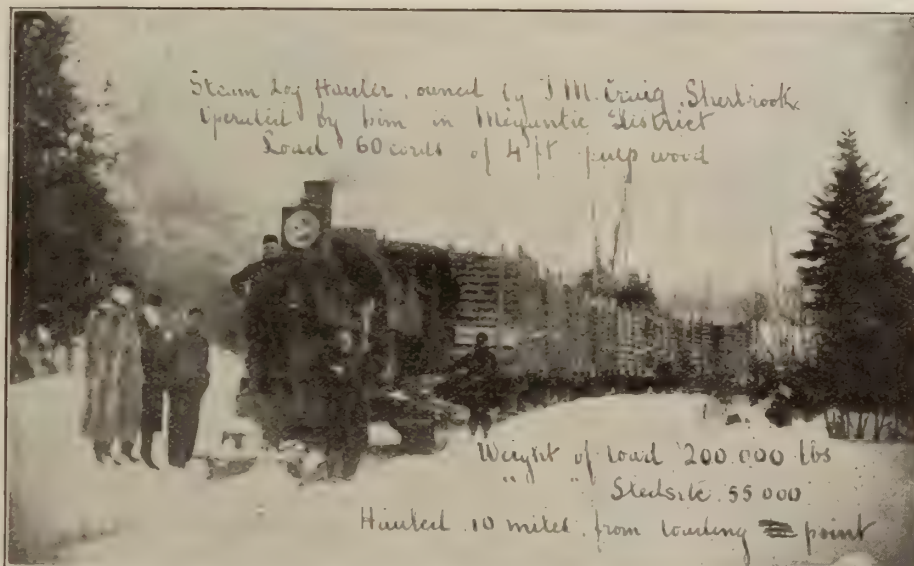 Steam Log Hauler, owned by J M. Craig, Sherbrook
Operated by him in Megantic District
Load 60 cords of 4 ft pulp wood
Weight of Load 200.000 lbs
" " 55 000
Hauled 10 miles from loading point